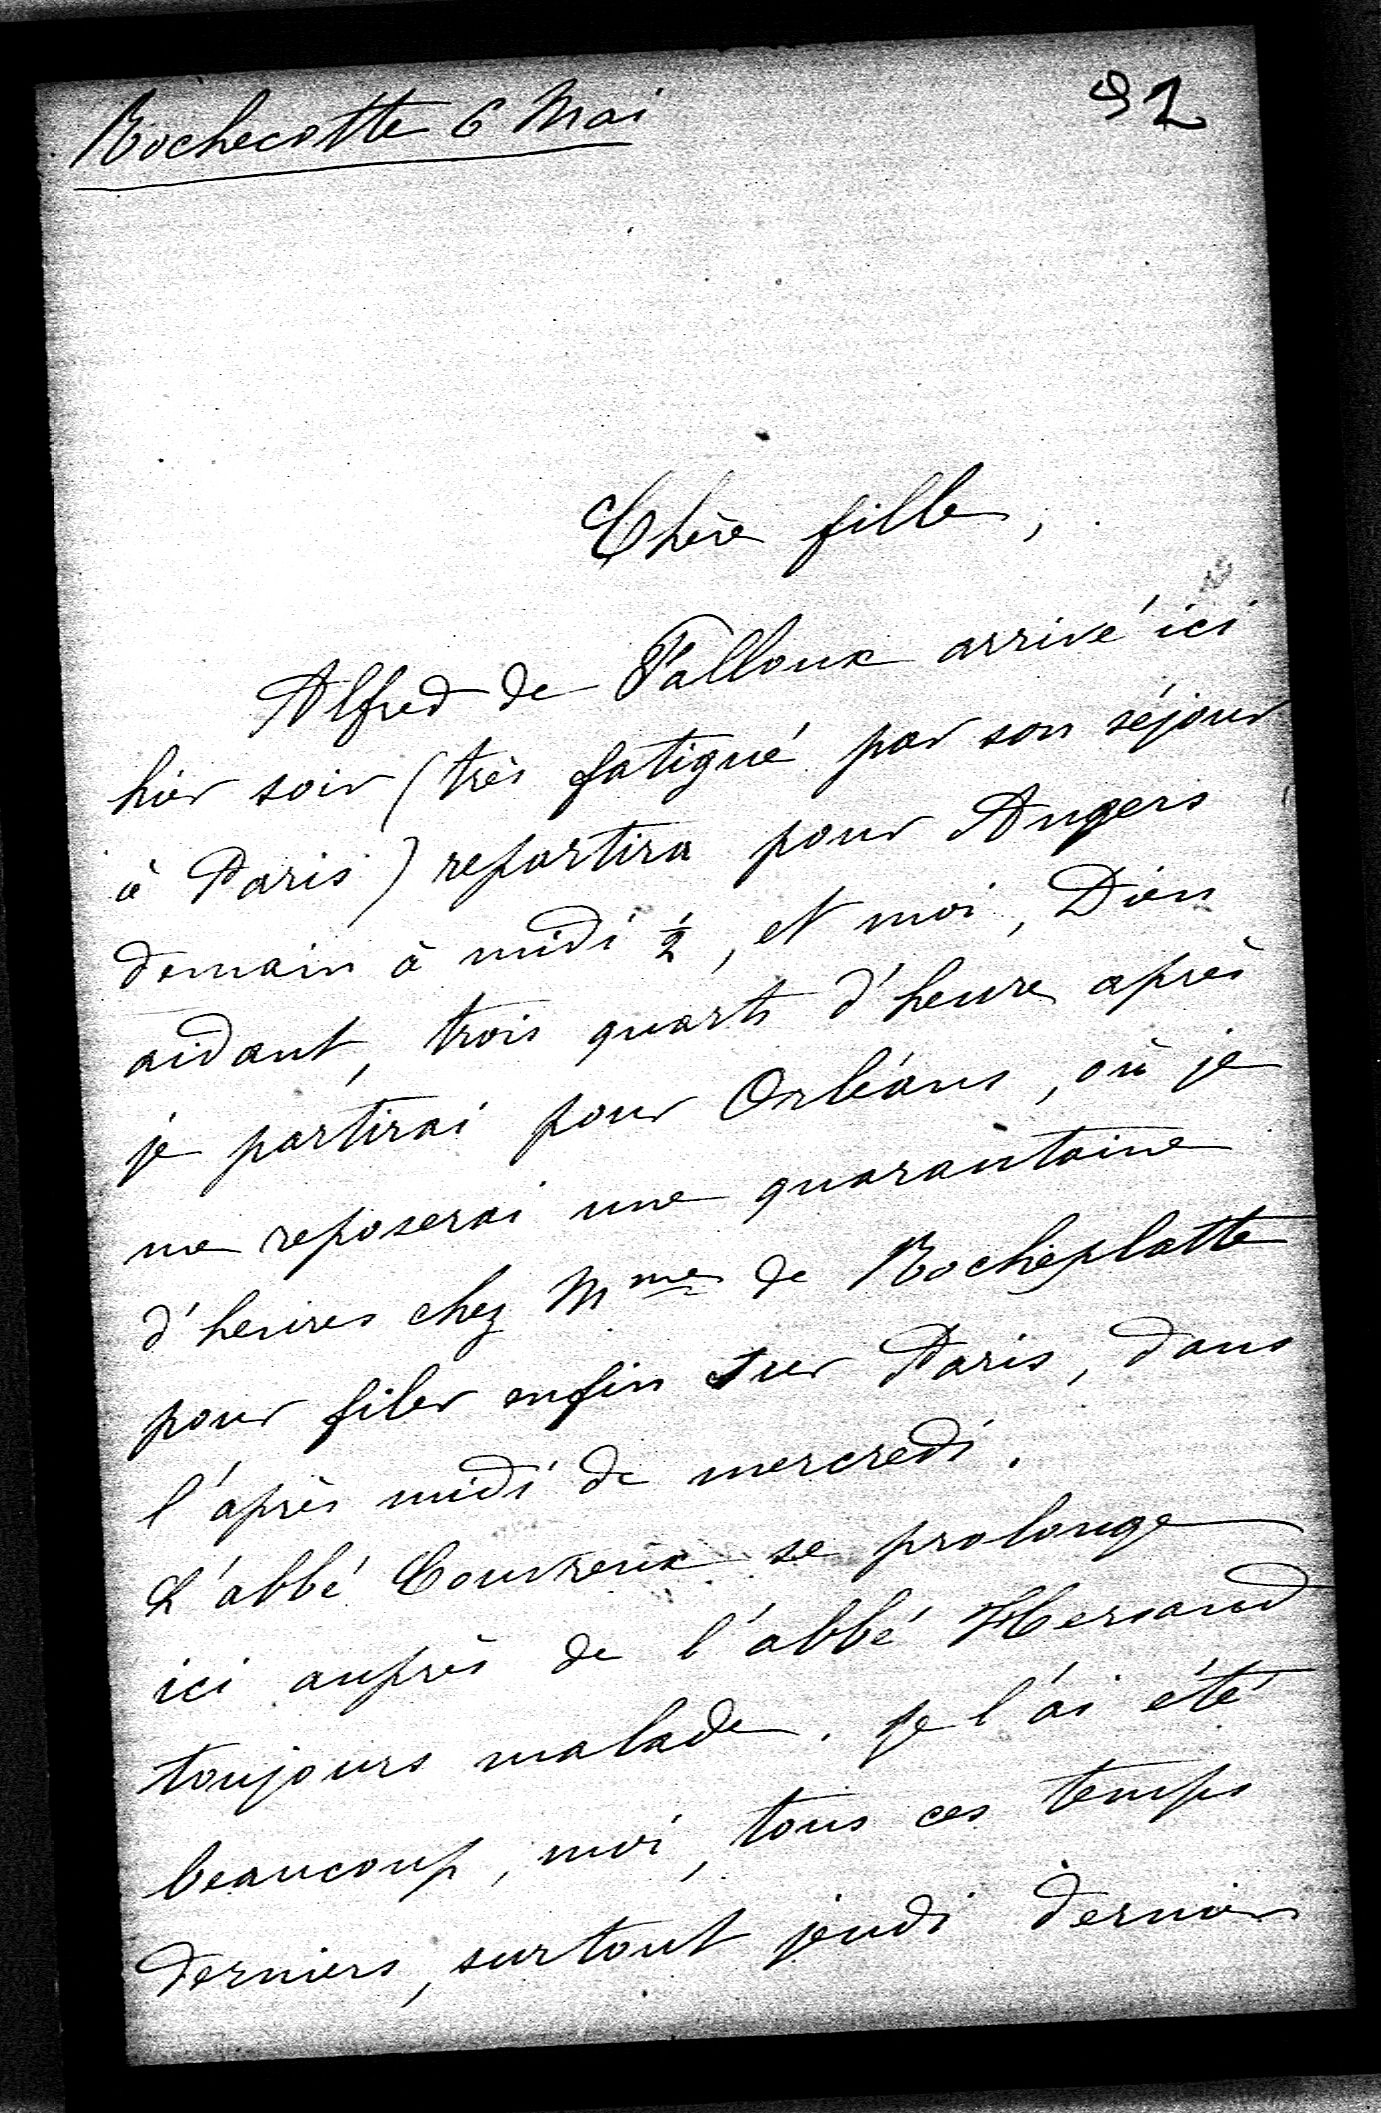 Rochecotte 6 Mai
92
Chère fille,
Alfred de Falloux arrivé ici
hier soir (très fatigué par son séjour
à Paris) repartira pour Angers
demain à midi ½, et moi, Dieu
aidant, trois quarts d'heure après
je partirai pour Orléans, où je
me reposerai une quarantaine
d'heures chez Mme de Rocheplatte
pour filer enfin sur Paris, dans
l'après midi de mercredi.
L'abbé Couvreux se prolonge
ici auprès de l'abbé Hersand
toujours malade. Je l'ai été
beaucoup, moi, tous ces temps
derniers, surtout jeudi dernier